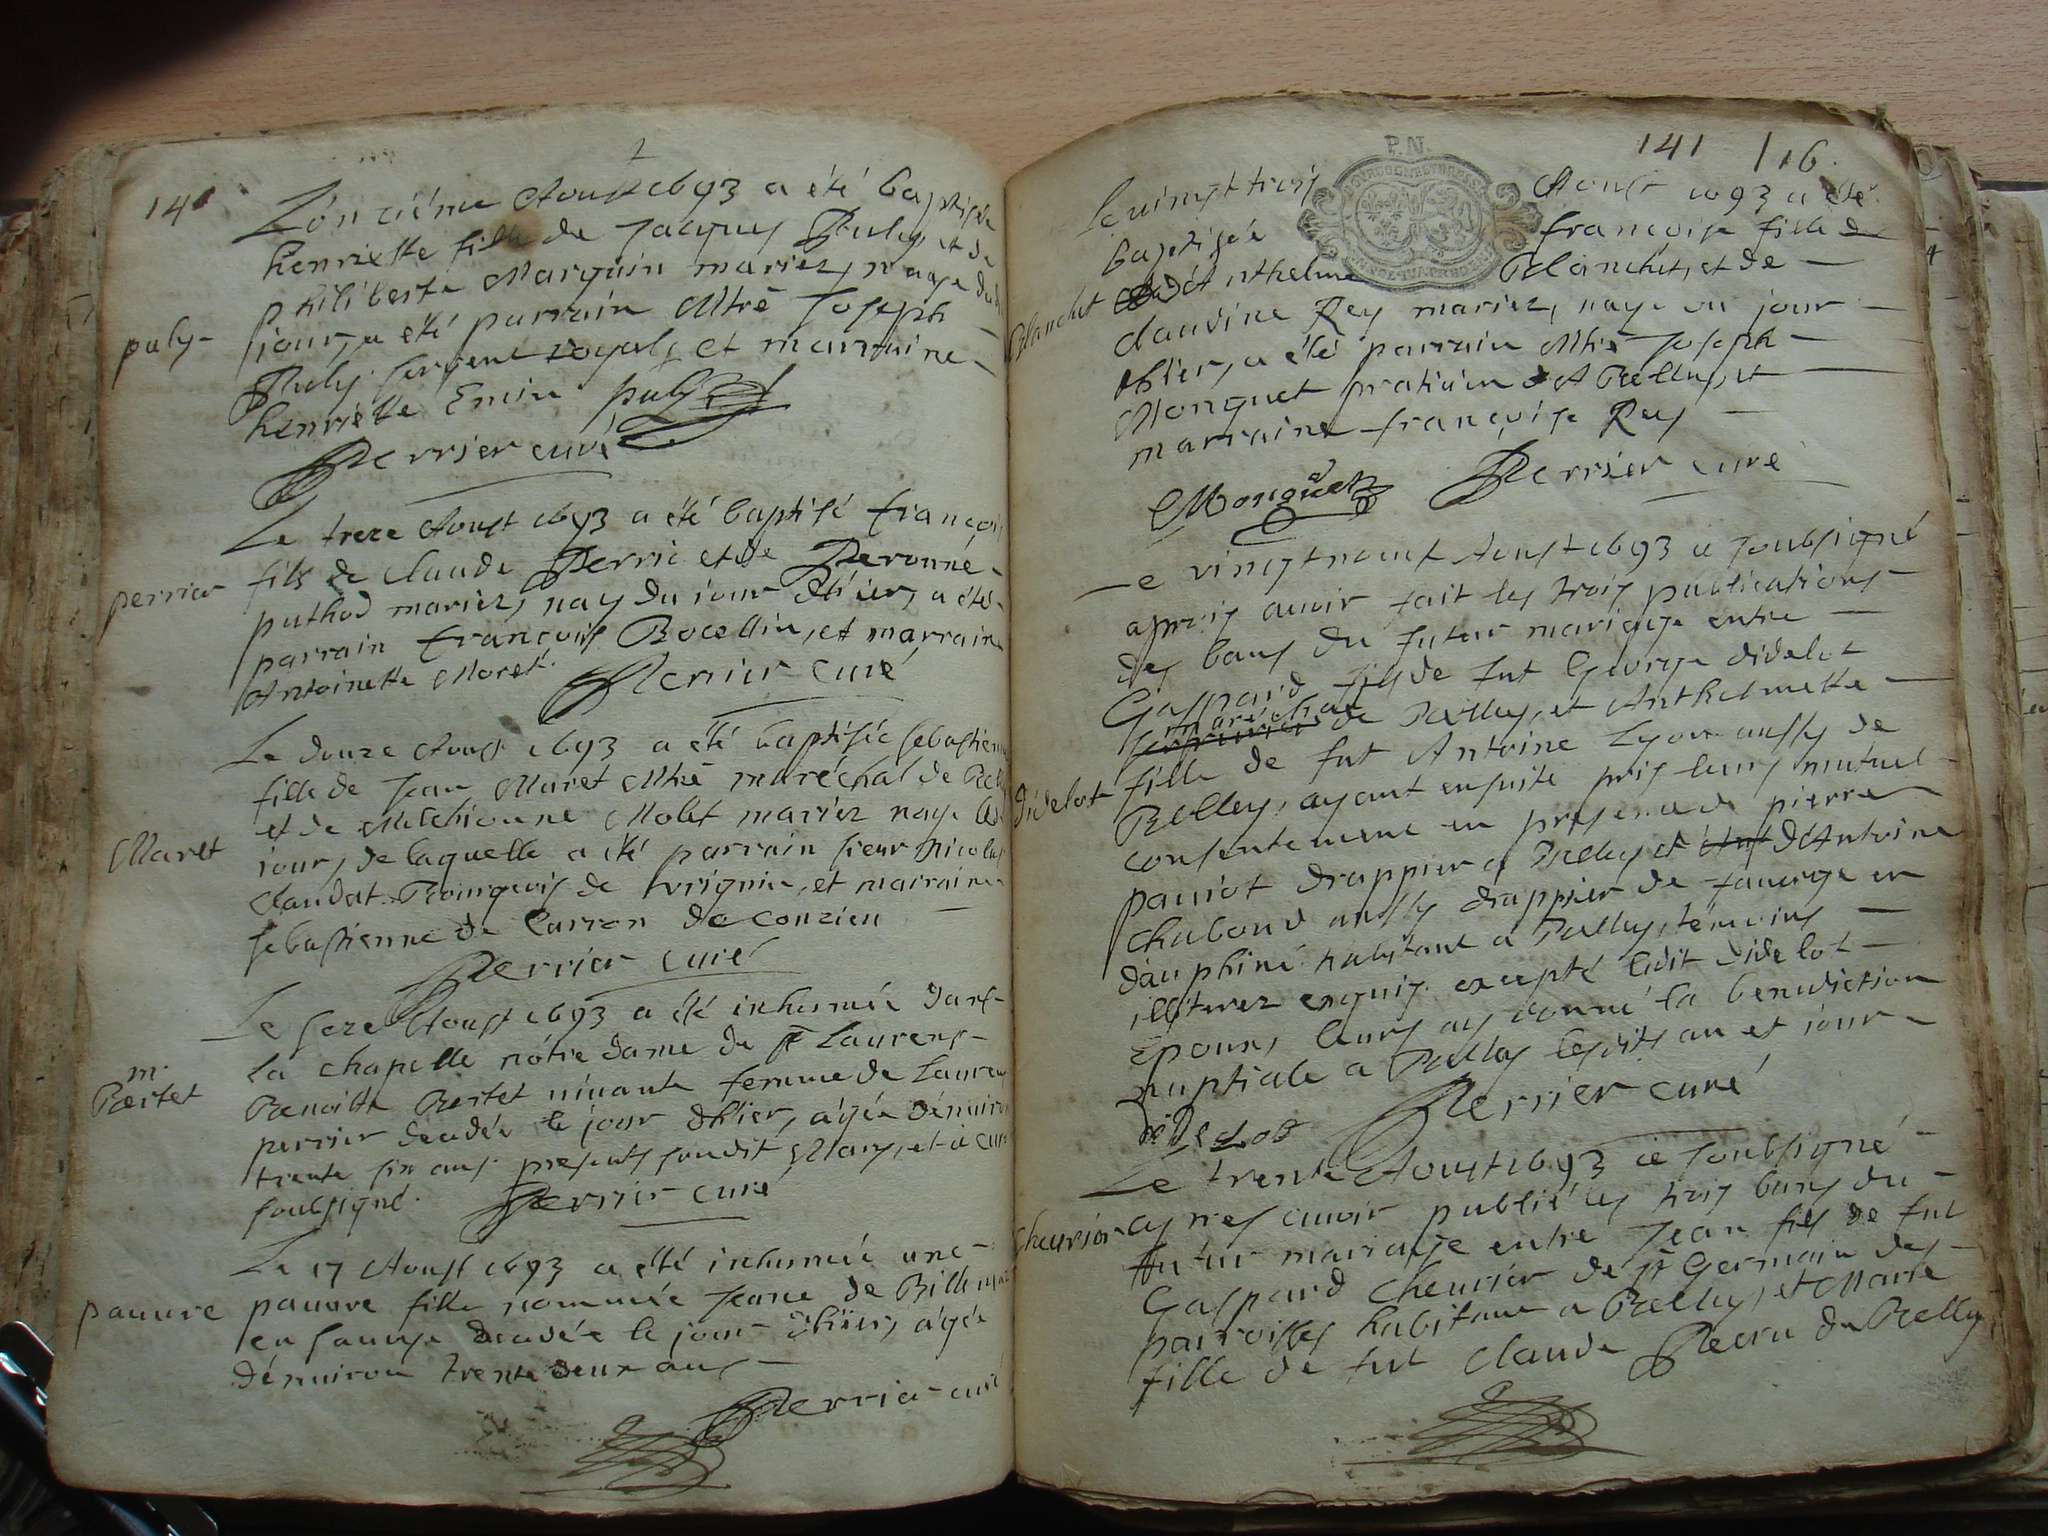 140
L'onziéme Aoust 1693 a été baptisée
henriette fille de Jacques Puly et de
philiberte Marguin mariez, naye dudit
puly
jour, a été parrain Mtre Joseph
Puly sergent royal, et marraine
henriette Emin puly
Perrier curé
Le treze Aoust 1693 a été baptisé françois
fils de Claude Perrié et de Peronne
perrier
puthod mariez, nay du jour d'hier, a été
parrain françois Bocellin, et marraine
Antoinette Moret.
Perrier curé
Le douze Aoust 1693 a été baptisée sebastienne
fille de Jean Maret Mtre maréchal de
et de Molet mariez naye
Maret
jour, de laquelle a été parrain sieur Nicolas
Claudat Bourgeois de Virignin, et marraine
sebastienne de Carron de Conzieu
Perrier curé
Le seze Aoust 1693 a été inhumée dans
la chapelle nôtre Dame de st Laurens
m.
Bertet
Benoitte Bertet vivante femme de Laurens
perrier decedée le jour d'hier, agée d'environ
trente six ans presents soudit Mary, et le curé
soubsigné.
Perrier curé
Le 17 Aoust 1693 a été inhumée une
pauvre
pauvre fille nommée Jeane de
en sauoye decedée le jour d'hier, agée
d'enuiron trente deux ans
Perrier curé
141 116.
Le uingt trois Aoust 1693 a été
P.N.
baptisée françoise fille de
Blanchet
d'Anthelme Blanchet, et de
claudine Rey mariez, naye du jour
d'hier, a été parrain Mtre Joseph
Monguet praticien a Belley, et
marraine françoise Rey
Monguet Perrier curé
Le vingtneuf Aoust 1693 ie soubsigné
apres auoir fait les trois publications
des bans du futur mariage entre
Gaspard fils de fut George didelot
marechal
de Belley, et Anthelmette
fille de fut Antoine Lyon aussy de
didelot
Belley, ayant ensuite pris leurs mutuel
consentement en presence de pierre
paviot drappier a Belley et d'Antoine
chaboud aussy drappier de fauerge en
dauphiné habitant a Belley, témoins
illiterez enquis excepté ledit didelot
Epoux, leurs ay donné la benediction
nuptiale a Belley lesdits an et jour
didelot
Perrier curé
Le trente Aoust 1693 ie soubsigné
cheurier
apres auoir publié les trois bans du
futur mariage entre Jean fils de fut
Gaspard Cheurier de st Germain des
parroisses habitant a Belley, et Marie
fille de fut Claude Perra du Belley